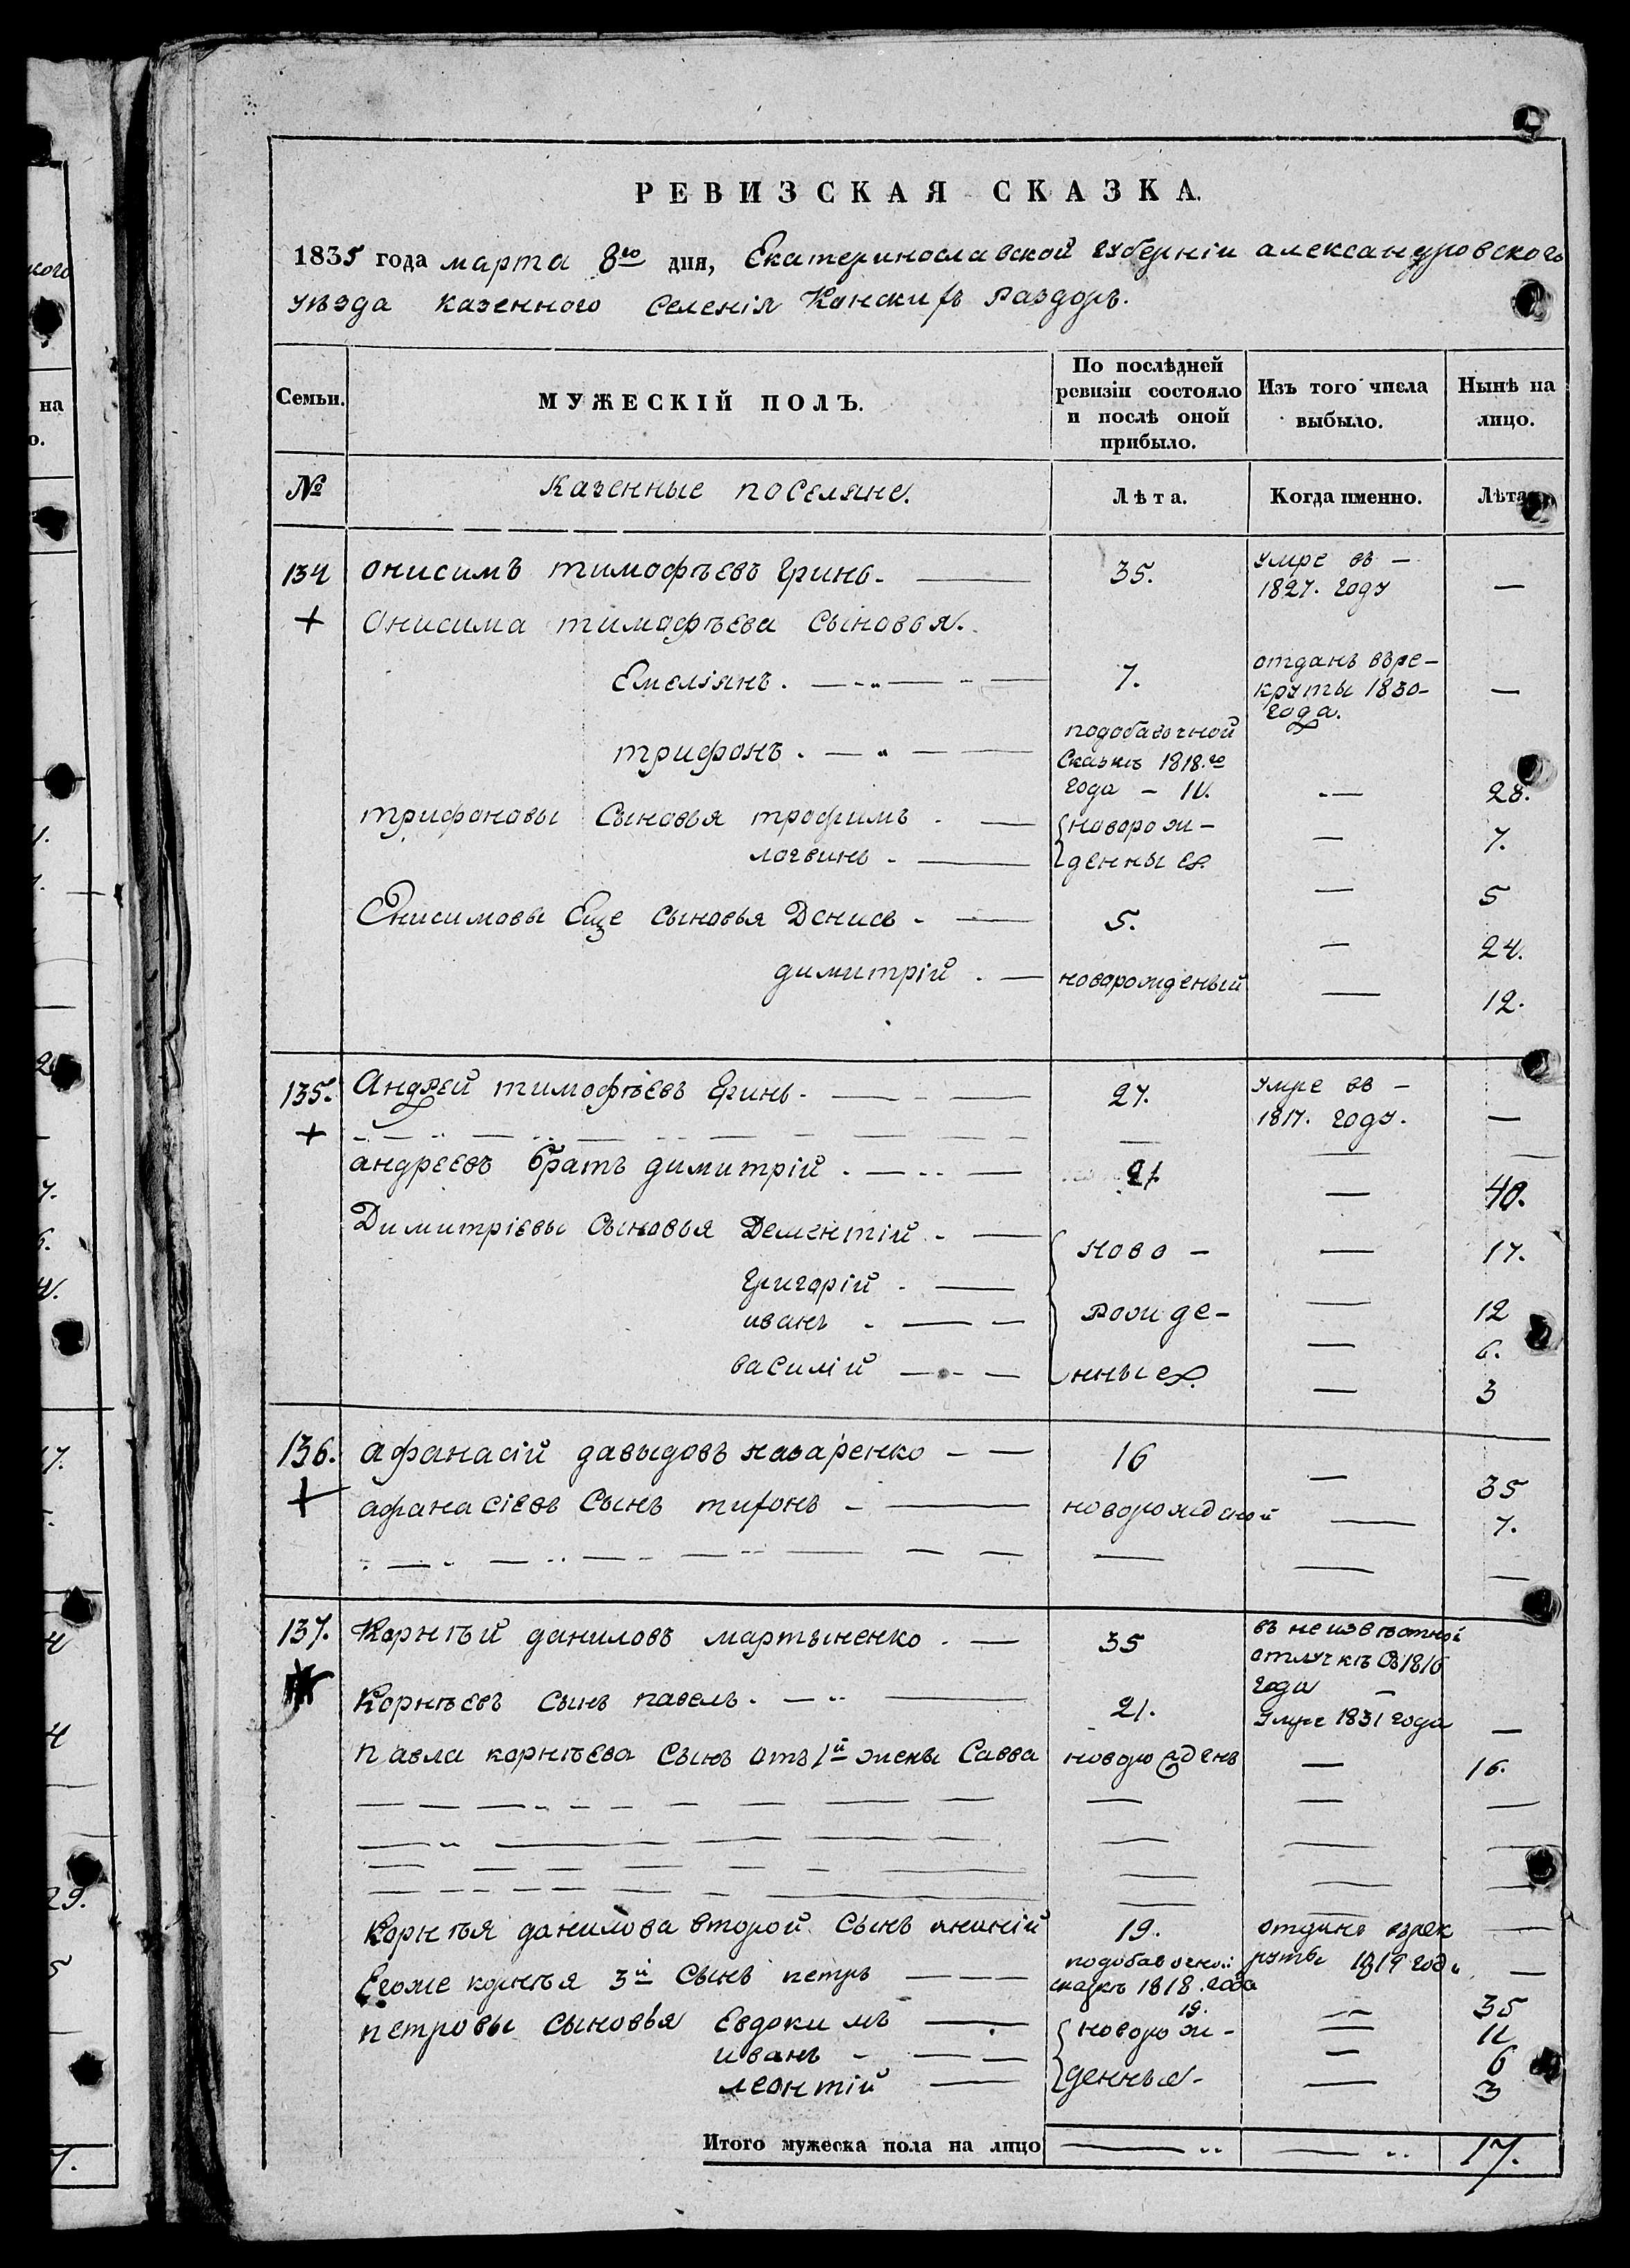 РЕВИЗСКАЯ СКАЗКА.
1835 года марта 8го дня, Екатеринославской губерніи александровского
уѣзда казенного селенія Конскихъ Раздоръ.
Семьи.
МУЖЕСКІЙ ПОЛЪ.
По послѣдней ревизіи состояло и послѣ оной прибыло.
Изъ того числа выбыло.
Нынѣ на лицо.
№ казенные поселяне. Лѣта. Когда именно. Лѣта
134 онисимъ тимофѣевъ Гринь. — 35. умре въ — 1827. году —
+ Онисима тимофѣева сыновья.
Емеліянъ. — 7. отданъ върекруты 1830 года. —
трифонъ. — подобавочной сказкѣ 1818.го года — 11. — 28.
трифоновы сыновья трофимъ — новорож- — 7.
логвинъ — денные. — 5
Онисимовы Еще сыновья Денисъ — 5. — 24.
димитрій — новарожденый — 12.
135. Андрей тимофѣевъ Гринь. — 27. умре въ — 1817. году. —
+
андреевъ братъ димитрій. — 21 — 40.
Димитріевы сыновья Дементій — ново- — 17.
Григорій — рожде- — 12
иванъ — 6.
василій — нные. — 3
136. афанасій давыдовъ назаренко — 16 — 35
+ афанасіевъ сынъ тихонъ — новорожденой — 7.
137. Корнѣй даниловъ мартыненко. — 35 въ неизвѣстной отлучкѣ съ 1816 года —
Корнѣевъ сынъ павелъ. — 21. умре 1831 года —
павла корнѣева сынъ отъ 1й жены Савва новорожденъ — 16.
Корнѣя данилова второй сынъ ананій 19. отданъ врекруты 1819 года —
Егоже корнѣя 3й сынъ петръ — подобавочной сказкѣ 1818. года 19. — 35
петровы сыновья Евдокимъ — новорож- — 11
иванъ — 6
леонтій — денные- — 3
Итого мужеска пола на лицо — — 17.